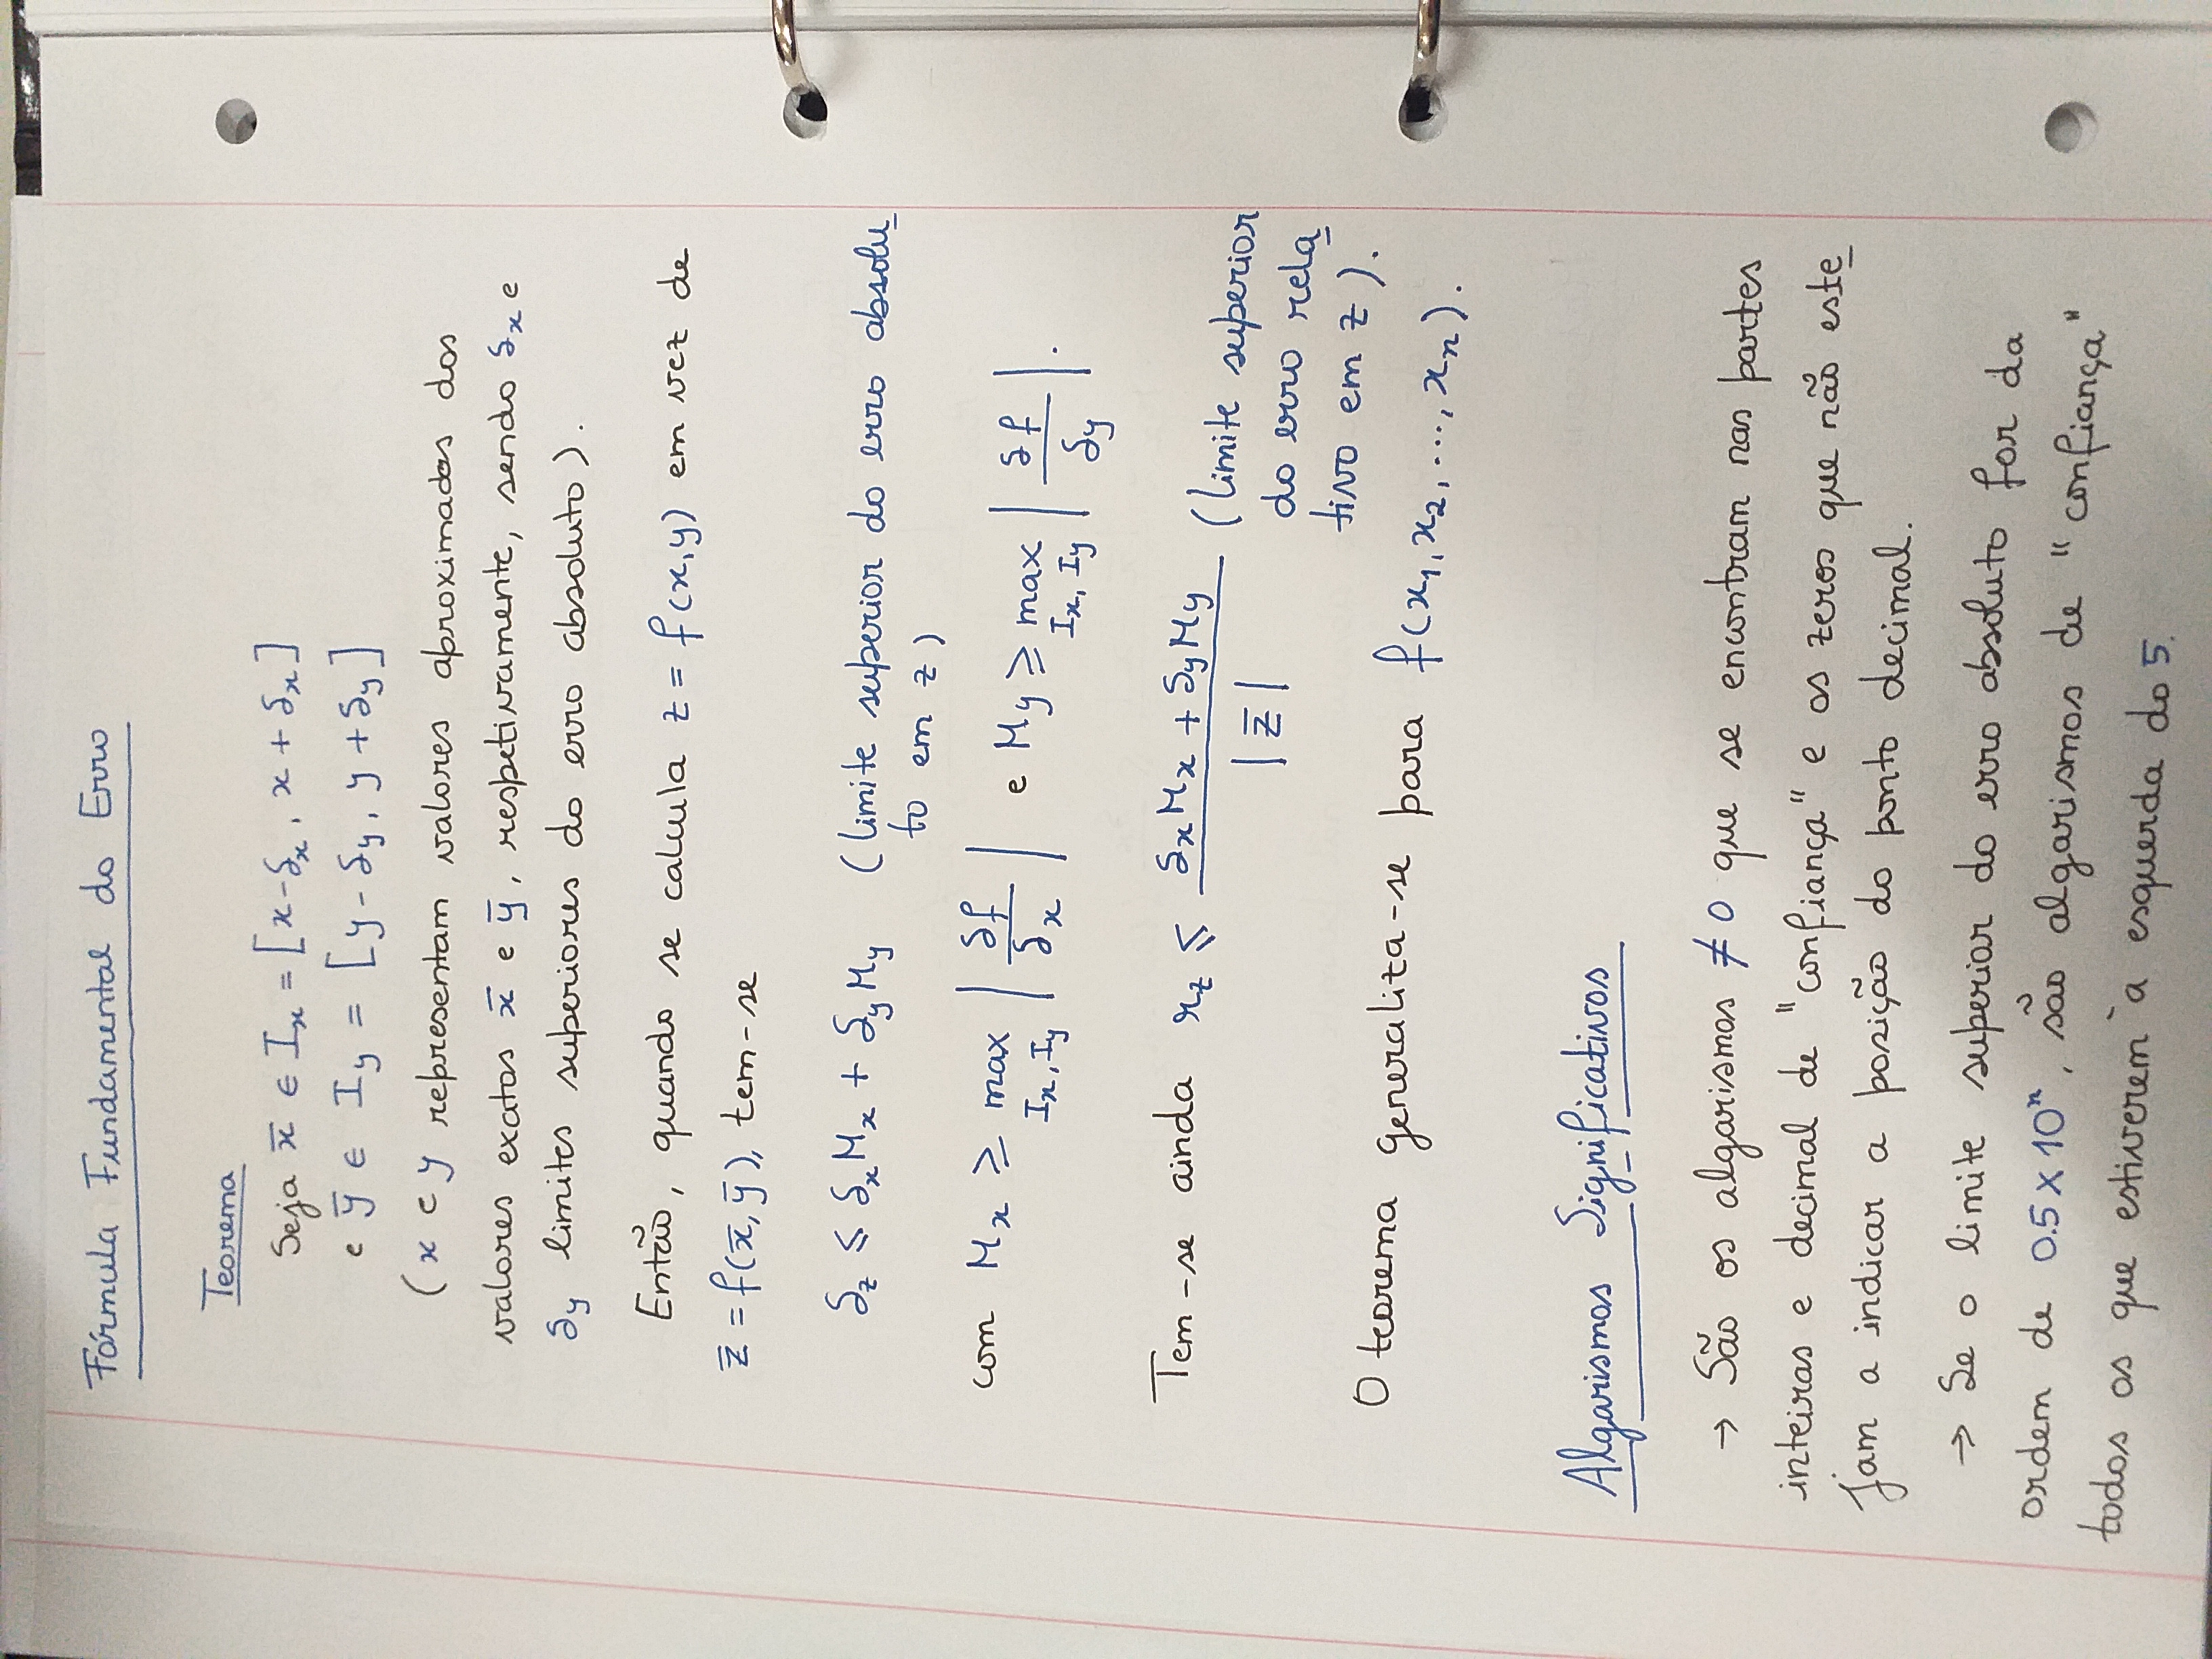 Fórmula Fundamental do Erro
Teorema
Seja x̄ ∈ Iₓ = [x-δₓ, x + δₓ]
e ȳ ∈ I_y = [y - δ_y, y + δ_y]
(x e y representam valores aproximados dos
valores exatos x̄ e ȳ, respetivamente, sendo δₓ e
δ_y limites superiores do erro absoluto).
Então, quando se calcula z = f(x,y) em vez de
z̄ = f(x̄, ȳ), tem-se
δ_z ⩽ δₓMₓ + δ_yM_y (limite superior do erro absolu-
to em z)
com Mₓ ⩾ max_{Iₓ, I_y} | δf/δₓ | e M_y ⩾ max_{Iₓ, I_y} | δf/δy |.
Tem-se ainda r_z ⩽ (δₓMₓ + δ_yM_y)/|z̄| (limite superior
do erro rela-
tivo em z).
O teorema generaliza-se para f(x₁, x₂, ..., xₙ).
Algarismos Significativos
→ São os algarismos ≠ 0 que se encontram nas partes
inteiras e decimal de "confiança" e os zeros que não este-
jam a indicar a posição do ponto decimal.
→ Se o limite superior do erro absoluto for da
ordem de 0.5 x 10ⁿ, são algarismos de "confiança"
todos os que estiverem à esquerda do 5.